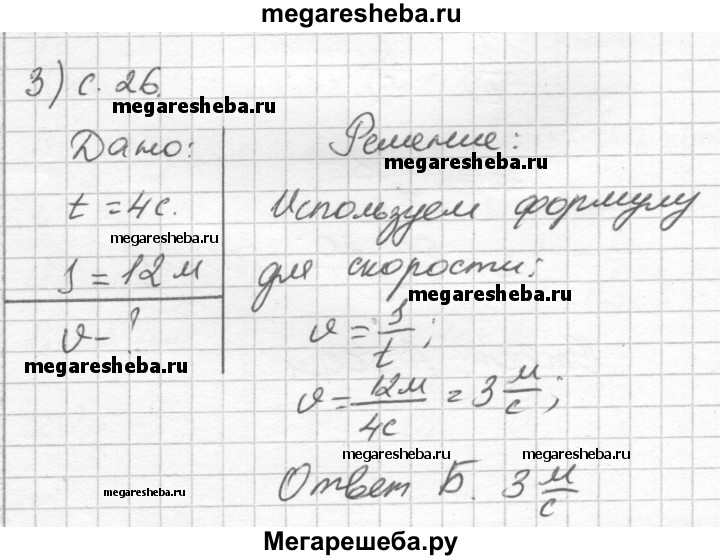 megaresheba.ru
3) с. 26.
megaresheba.ru
Дано:
Решение:
megaresheba.ru
t = 4с.
Используем формулу
megaresheba.ru
S = 12 м
для скорости:
megaresheba.ru
v - ?
v = S/t;
megaresheba.ru
v = 12м/4с = 3 м/с;
megaresheba.ru
megaresheba.ru
megaresheba.ru
Ответ Б. 3 м/с
Мегарешеба.ру